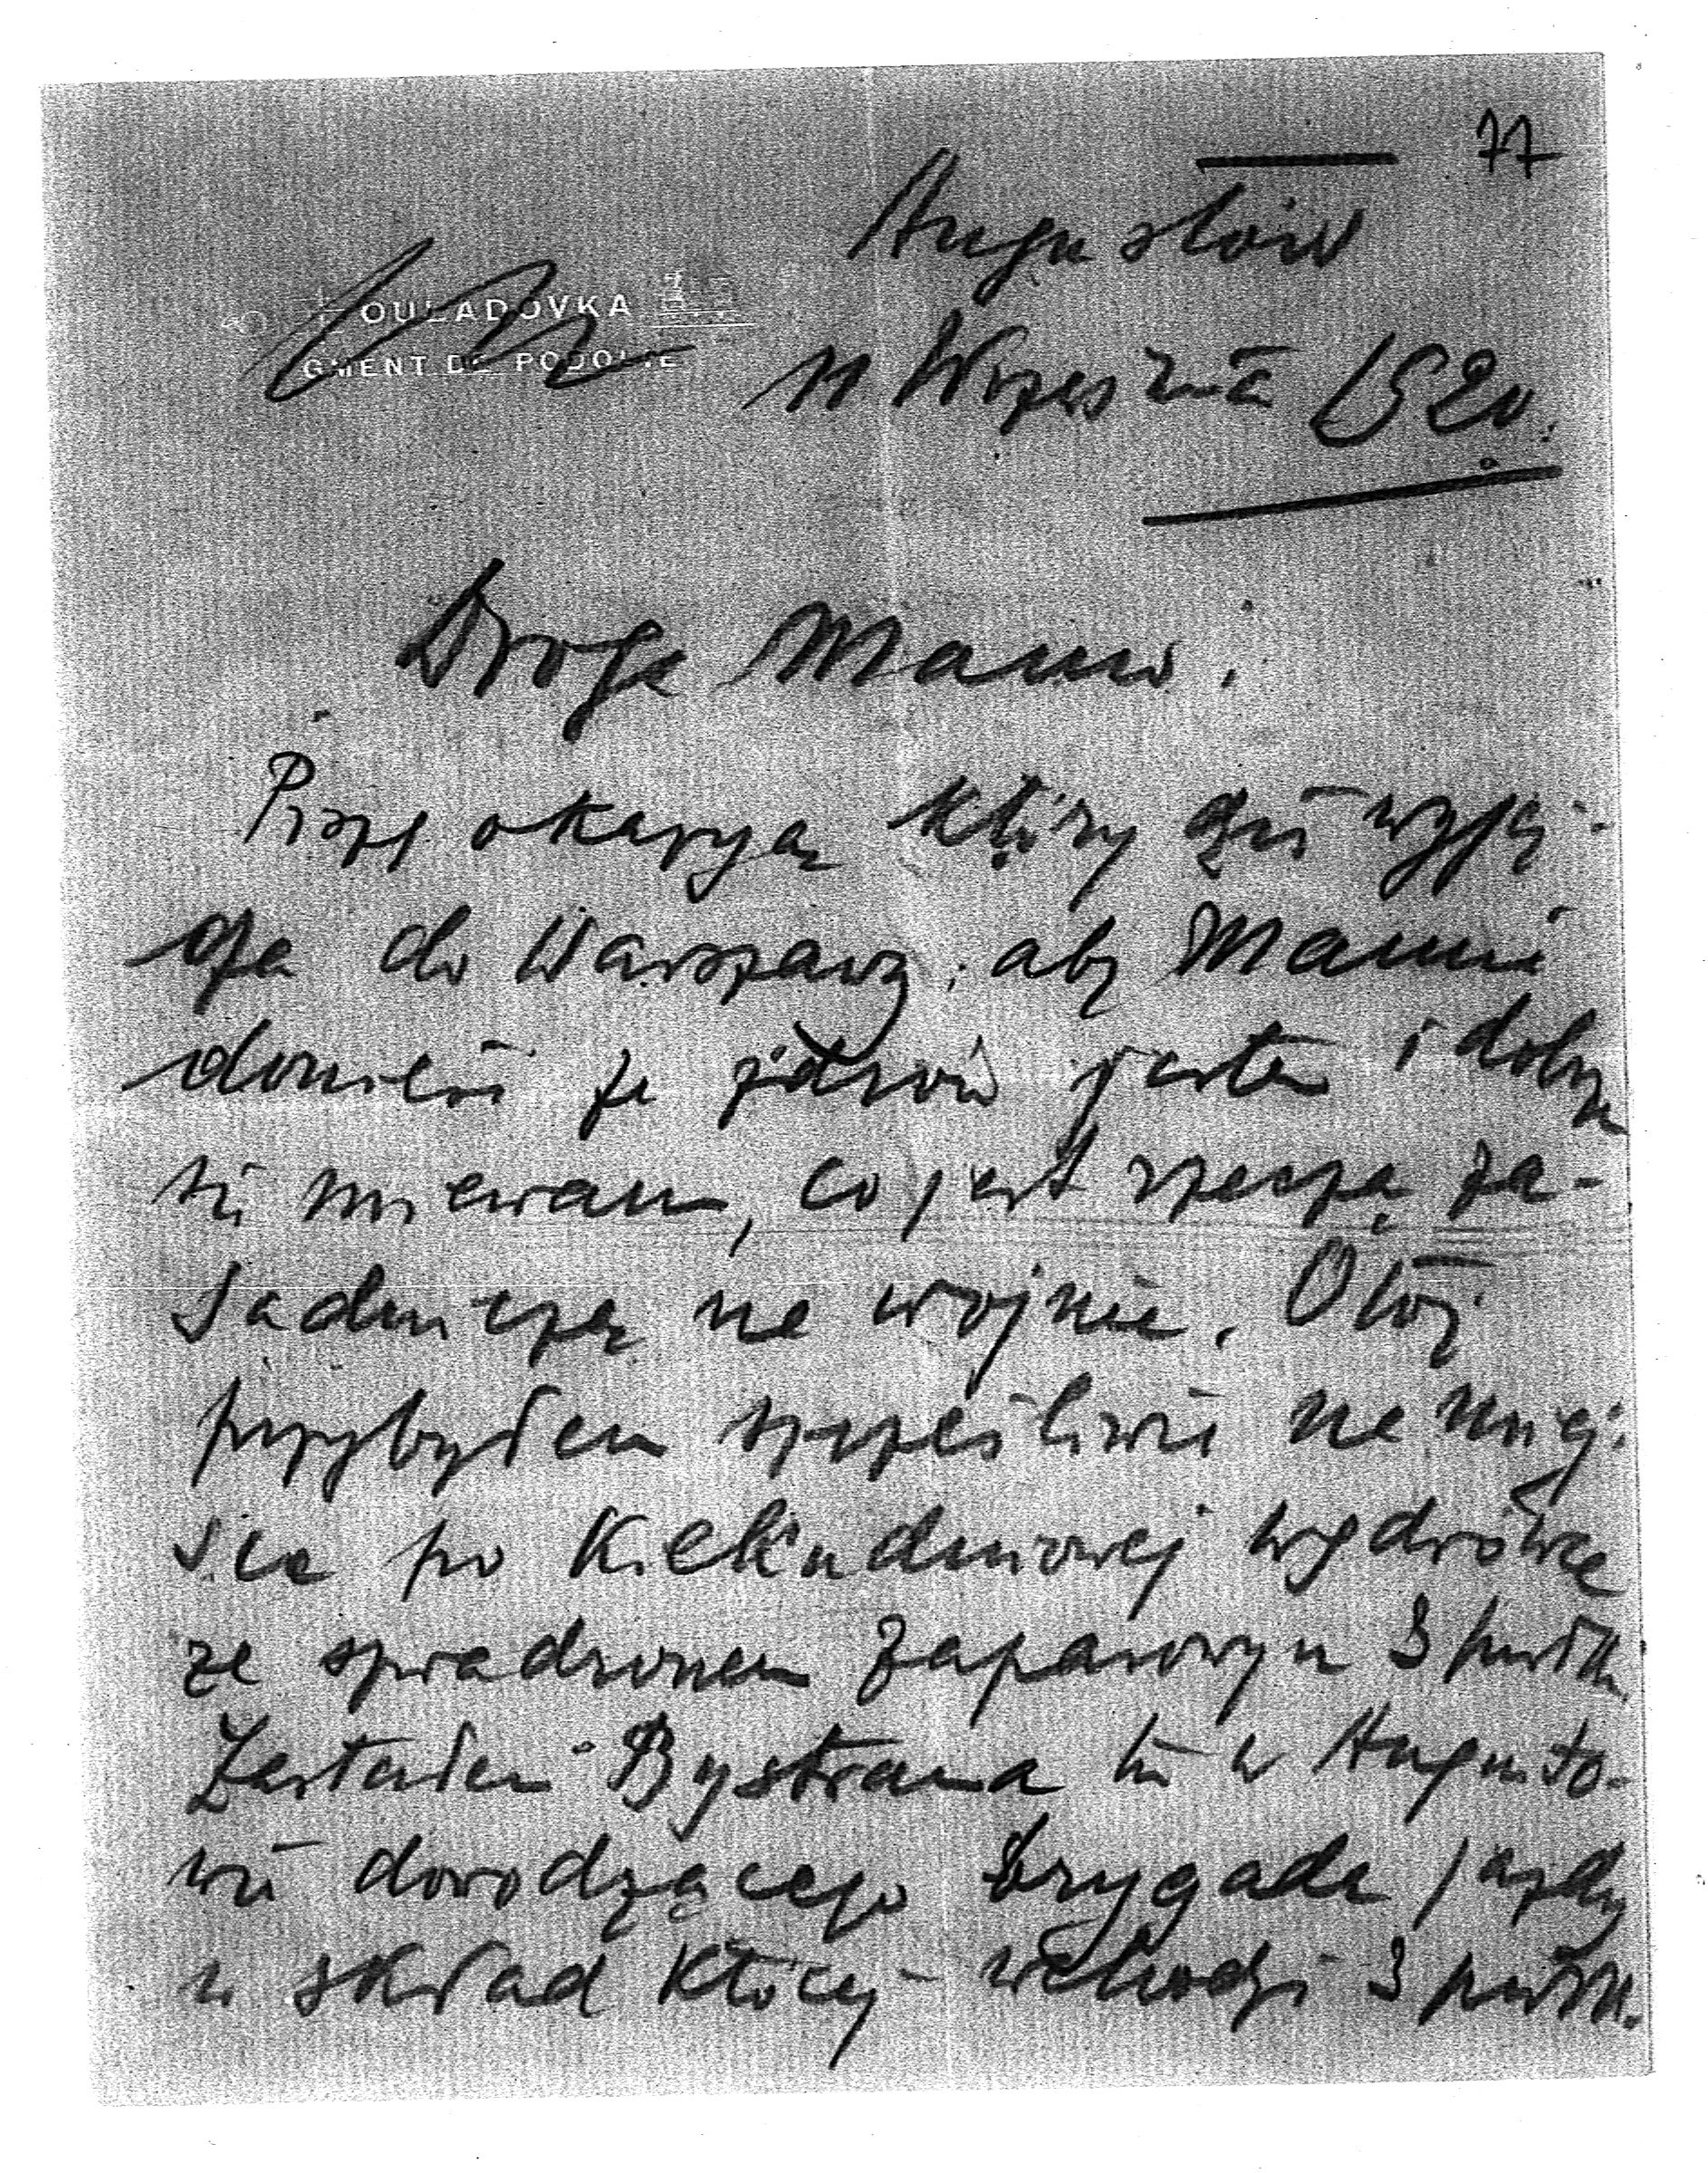 77
Augustów
OULADOVKA
GMENT DE PODOLIE
11 Września 1920.
Droga Mamo.
Piszę okazyą który dziś wyje-
dża do Warszawy, aby Mamie
donieść że zdrów jestem i dobrze
się miewam, co jest rzeczą za-
sadniczą na wojnie. Otóż
przybyłem szczęśliwie na miej-
sce po kilkudniowej wędrówce
ze szwadronem zapasowym 3 pułku.
Zastałem Bystrama tu w Augusto-
wie dowodzącego brygadą jazdy
w skład której wchodzi 3 pułk.